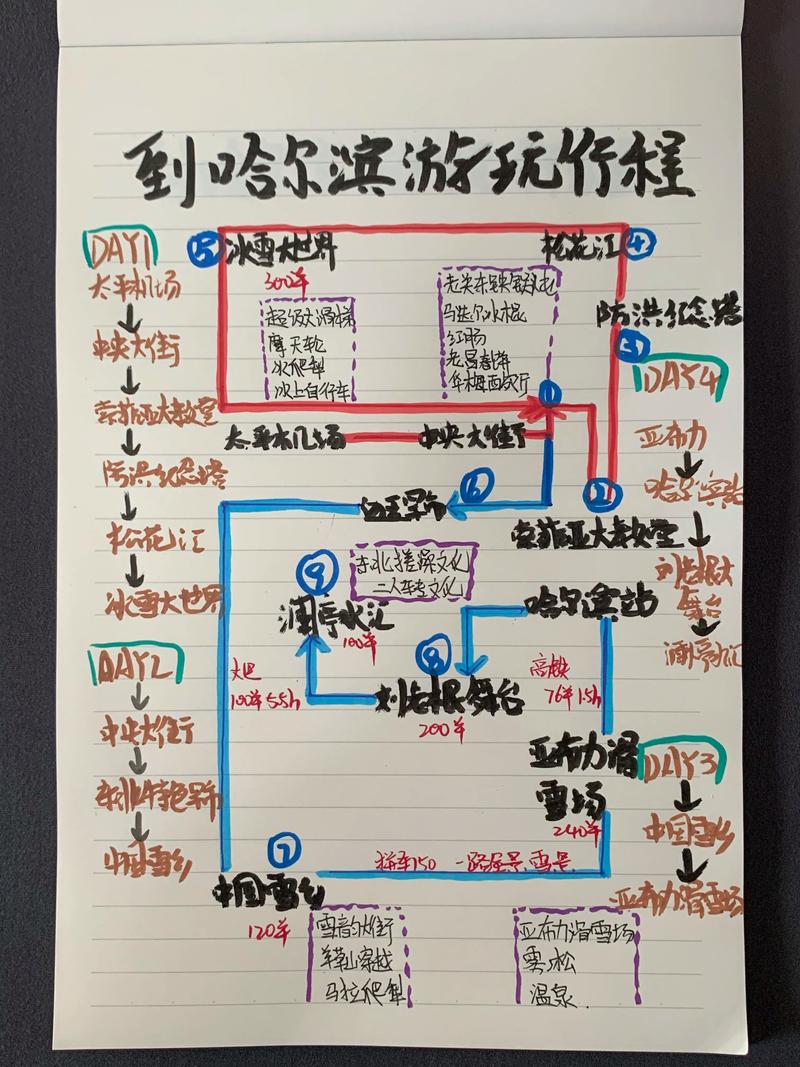 到哈尔滨游玩行程
DAY1
太平机场
中央大街
索菲亚大教堂
防洪纪念塔
松花江
冰雪大世界
DAY2
中央大街
东北特色早市
中国雪乡
⑤ 冰雪大世界
300羊
超级大滑梯
摩天轮
冰爬犁
冰上自行车
松花江 ④
马迭尔冰棍
红肠
老昌春饼
华梅西餐厅
防洪纪念塔
③
①
太平机场
中央大街
②
索菲亚大教堂
⑥
早市
⑨
东北搓澡文化
二人转文化
澜亭水汇
100羊
哈尔滨站
⑧
刘老根舞台
200羊
大巴
100羊5.5h
高铁
76羊1.5h
亚布力滑
雪场
240羊
拼车150 一路尽景.雪景
⑦
中国雪乡
120羊
雪韵大街
羊草山穿越
马拉爬犁
亚布力滑雪场
雾凇
温泉
DAY4
亚布力
哈尔滨站
刘老根大
舞台
澜亭水汇
DAY3
中国雪乡
亚布力滑雪场